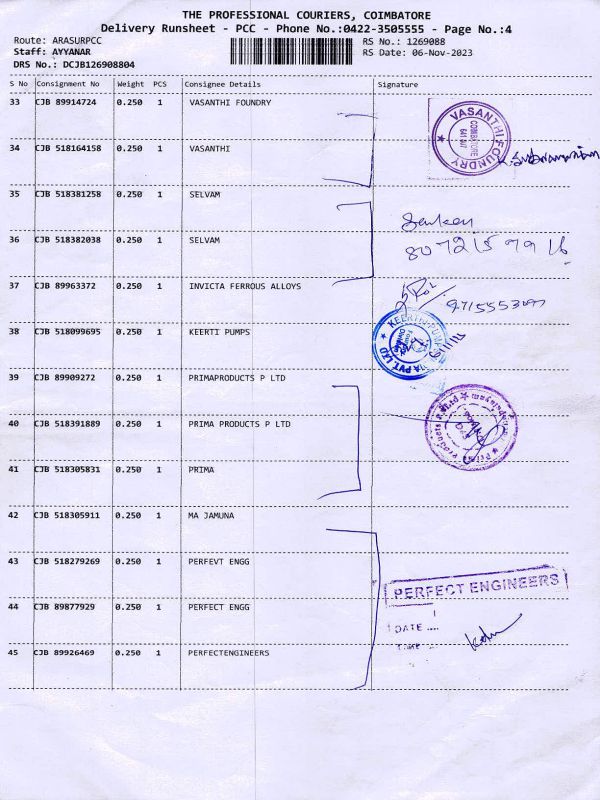 THE PROFESSIONAL COURIERS, COIMBATORE
Delivery Runsheet - PCC - Phone No.:0422-3505555 - Page No.:4
Route: ARASURPCC
RS No.: 1269088
Staff: AYYANAR
RS Date: 06-Nov-2023
DRS No.: DCJB126908804
S No Consignment No Weight PCS Consignee Details Signature
33 CJB 89914724 0.250 1 VASANTHI FOUNDRY
VASANTHI FOUNDRY
COIMBATORE
34 CJB 518164158 0.250 1 VASANTHI
35 CJB 518381258 0.250 1 SELVAM
36 CJB 518382038 0.250 1 SELVAM
37 CJB 89963372 0.250 1 INVICTA FERROUS ALLOYS
38 CJB 518099695 0.250 1 KEERTI PUMPS
39 CJB 89909272 0.250 1 PRIMAPRODUCTS P LTD
40 CJB 518391889 0.250 1 PRIMA PRODUCTS P LTD
41 CJB 518305831 0.250 1 PRIMA
42 CJB 518305911 0.250 1 MA JAMUNA
43 CJB 518279269 0.250 1 PERFEVT ENGG
PERFECT ENGINEERS
44 CJB 89877929 0.250 1 PERFECT ENGG
DATE ....
TIME
45 CJB 89926469 0.250 1 PERFECTENGINEERS